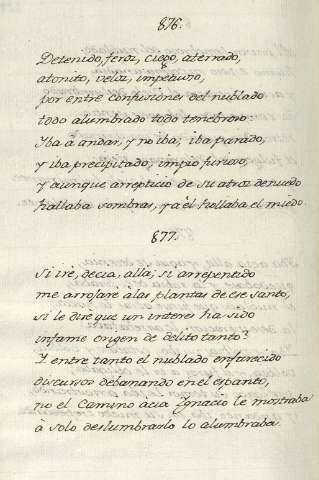 876.
Detenido, feroz, ciego, aterrado,
atonito, veloz, impetuoso,
por entre confusiones del nublado
todo alumbrado todo tenebroso.
Yba a andar, y no iba; iba parado,
y iba precipitado; impio furioso,
y aunque arrepticio de su atroz denuedo
hallaba sombras, y a él hallaba el miedo.
877.
Si iré, decia, alla; si arrepentido
me arrojaré à las plantas de ese santo,
si le diré que un interes ha sido
infame origen de delito tanto?
Y entre tanto el nublado enfurecido
discursos debanando en el espanto,
no el Camino ácia Ygnacio le mostraba
à solo deslumbrarlo lo alumbraba.